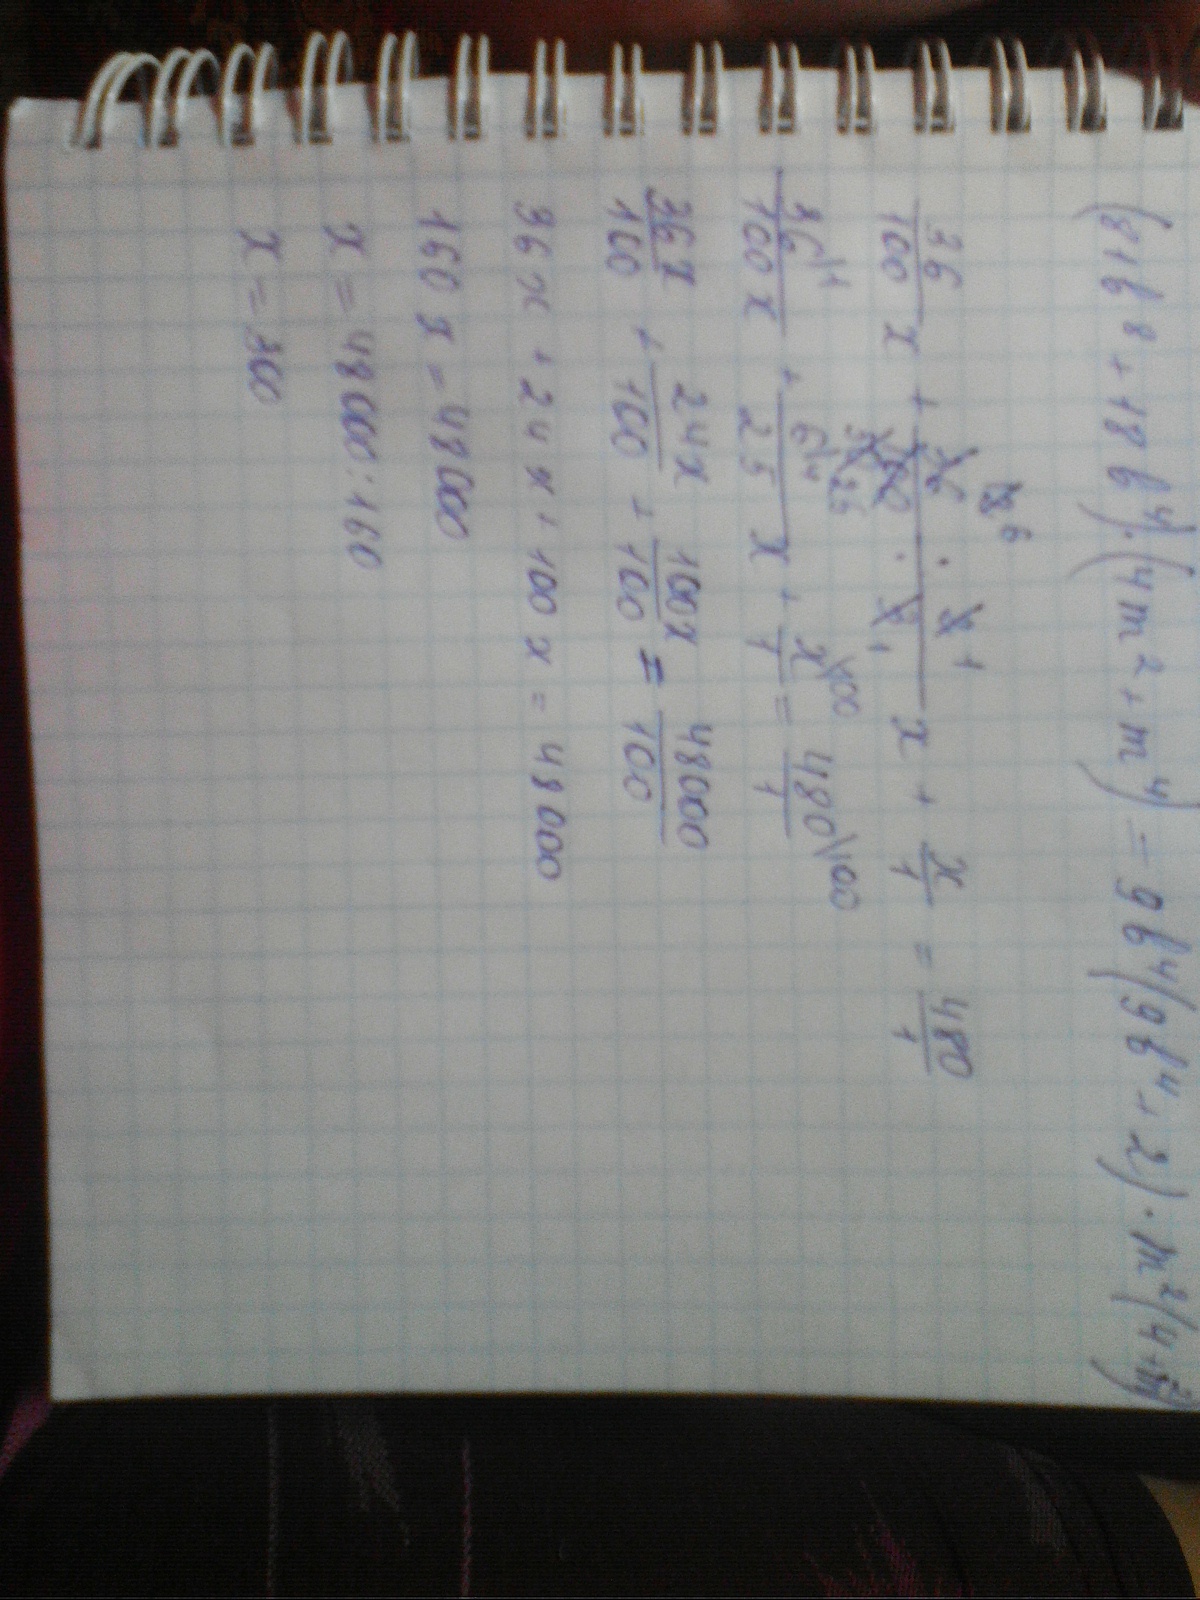 (81b⁸ + 18b⁴) · (4m² + m⁴) = 9b⁴(9b⁴ + 2) · m²(4 + m²)
36/100 x + (36 · 2)/(100 · 3) x + x/1 = 480/1
36/100 x + 6/25 x + x/1 = 480/1
36x/100 + 24x/100 + 100x/100 = 48000/100
36x + 24x + 100x = 48000
160x = 48000
x = 48000 : 160
x = 300